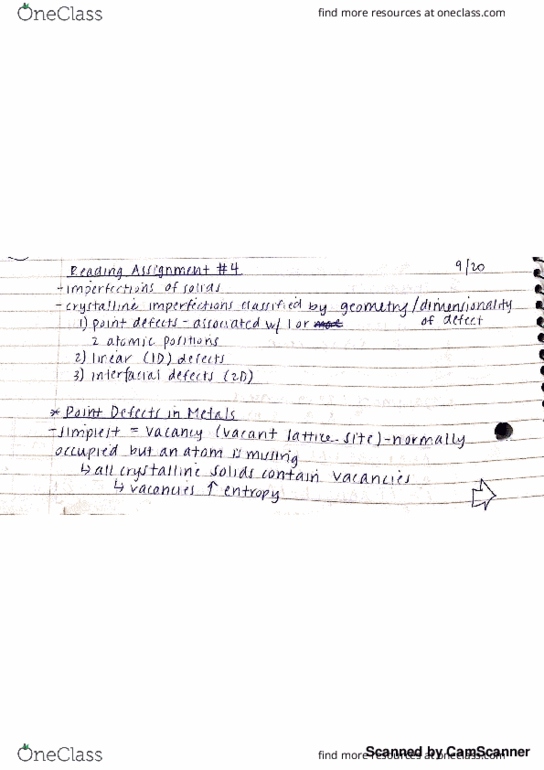 OneClass
find more resources at oneclass.com
Reading Assignment #4
9/20
-imperfections of solids
-crystalline imperfections classified by geometry/dimensionality of defect
1) point defects - associated w/ 1 or
2 atomic positions
2) linear (1D) defects
3) interfacial defects (2D)
* Point Defects in Metals
-simplest = vacancy (vacant lattice site)-normally
occupied but an atom is missing
↳ all crystalline solids contain vacancies
↳ vacancies ↑ entropy
OneClass
find more resources at oneclass.com
Scanned by CamScanner